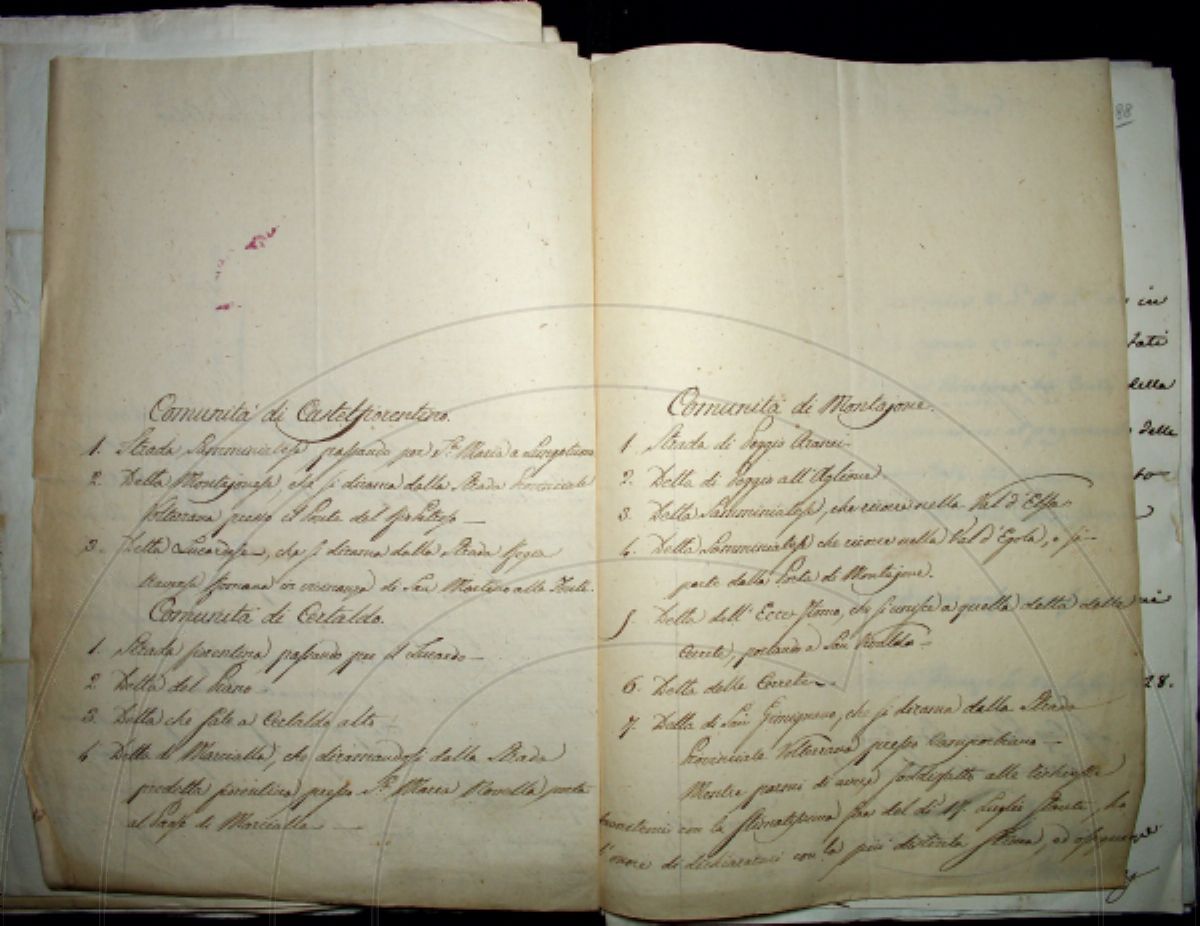 Comunità di Castelfiorentino.
1. Strada Samminiatese passando per S.ª Maria a Lungotuono
2. Detta Montajonese, che si dirama dalla Strada Provinciale
Volterrana presso il Ponte del
3. Detta Lucardese, che si dirama dalla Strada Regia
Traversa Romana in vicinanza di San Martino alle Fonti.
Comunità di Certaldo.
1. Strada fiorentina passando per il Lucardo
2. Detta del Piano
3. Detta che sale a Certaldo alto
4 Detta di Marcialla, che diramandosi dalla Strada
predetta fiorentina presso S.ª Maria Novella, porta
al Paese di Marcialla
Comunità di Montajone.
1. Strada di Poggio Aranci
2. Detta di Poggio all'Aglione
3. Detta Samminiatese, che ricorre nella Val d'Elsa
4. Detta Samminiatese che ricorre nella Val d'Egola, e si
parte dalla Porta di Montajone.
5. Detta dell'Ecce Homo, che si unisce a quella detta delle
Cerrete, portando a San Vivaldo
6. Detta delle Cerrete
7. Detta di San Gimignano, che si dirama dalla Strada
Provinciale Volterrana presso Camporbiano
Mentre parmi di avere soddisfatto alle richieste
con la Stimatissima sua del dì 17 Luglio stante, ho
l'onore di dichiararmi con la più distinta stima, ed ossequio
88
in
della
delle
28.